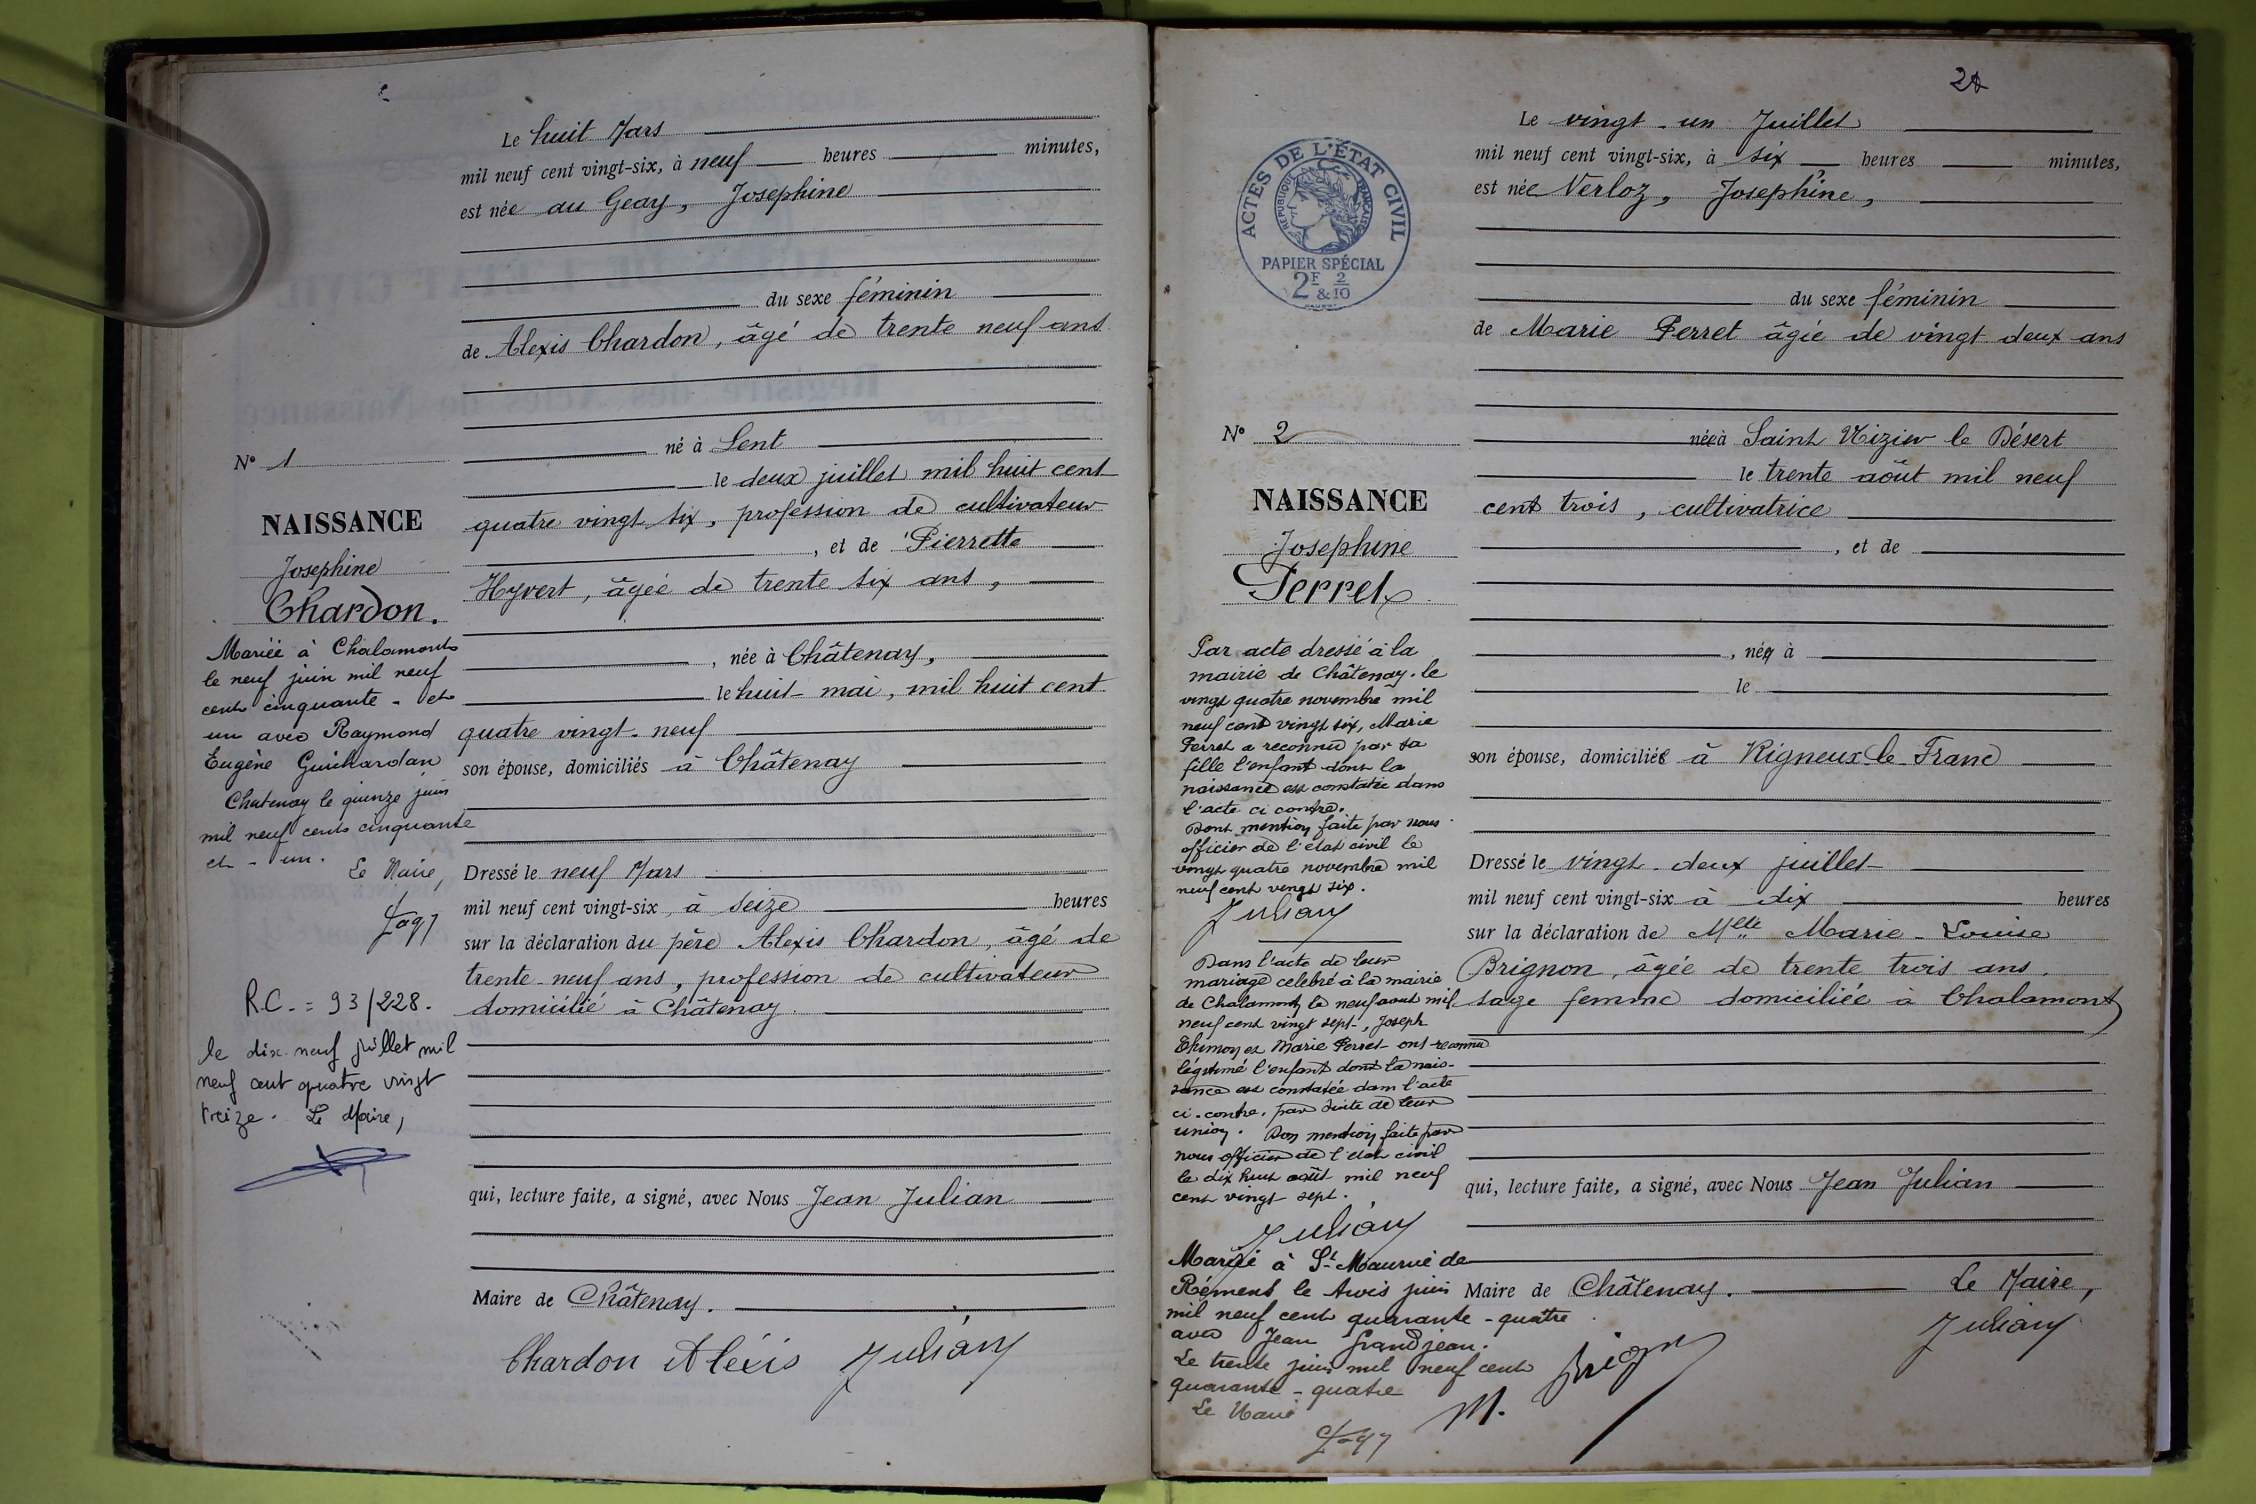 Le huit Mars
mil neuf cent vingt-six, à neuf heures minutes,
est née au Geay, Josephine
du sexe féminin
de Alexis Chardon, âgé de trente neuf ans
né à Lent
le deux juillet mil huit cent
quatre vingt six, profession de cultivateur
, et de Pierrette
Hyvert, âgée de trente six ans,
, née à Châtenay,
le huit mai, mil huit cent
quatre vingt-neuf
son épouse, domiciliés à Châtenay
Dressé le neuf Mars
mil neuf cent vingt-six, à seize heures
sur la déclaration du père Alexis Chardon, âgé de
trente-neuf ans, profession de cultivateur
domicilié à Châtenay.
qui, lecture faite, a signé, avec Nous Jean Julian
Maire de Châtenay.
Chardon Alexis Julian
N° 1
NAISSANCE
Josephine
Chardon.
Mariée à Chalamont
le neuf juin mil neuf
cent cinquante - et
un avec Raymond
Eugène Guichardan
Chatenay le quinze juin
mil neuf cent cinquante
et - un.
Le Maire,
R.C. = 93/228.
le dix-neuf juillet mil
neuf cent quatre vingt
treize. Le Maire,
2
Le vingt-un Juillet
mil neuf cent vingt-six, à six heures minutes,
est née Verloz, Josephine,
du sexe féminin
de Marie Perret âgée de vingt deux ans
née à Saint Nizier le Désert
le trente août mil neuf
cent trois, cultivatrice
, et de
, née à
le
son épouse, domiciliée à Rigneux le Franc
Dressé le vingt-deux juillet
mil neuf cent vingt-six à dix heures
sur la déclaration de Melle Marie-Louise
Brignon, âgée de trente trois ans.
sage femme domiciliée à Chalamont
qui, lecture faite, a signé, avec Nous Jean Julian
Maire de Châtenay. Le Maire,
Julian
M. Brignon
ACTES DE L'ÉTAT CIVIL
RÉPUBLIQUE FRANÇAISE
PAPIER SPÉCIAL
2F & 2/10
N° 2
NAISSANCE
Josephine
Perret
Par acte dressé à la
mairie de Châtenay le
vingt quatre novembre mil
neuf cent vingt six, Marie
Perret a reconnu par sa
fille l'enfant dont la
naissance est constatée dans
l'acte ci contre.
Dont mention faite par nous
officier de l'état civil le
vingt quatre novembre mil
neuf cent vingt six.
Julian
Dans l'acte de leur
mariage célébré à la mairie
de Chalamont le neuf août mil
neuf cent vingt sept, Joseph
Thimon et Marie Perret ont reconnu
légitimé l'enfant dont la nais-
sance est constatée dans l'acte
ci-contre, par suite de leur
union. Don mention faite par
nous officier de l'état civil
le dix huit août mil neuf
cent vingt sept.
Julian
Mariée à St Maurice de
Rémens le trois juin
mil neuf cent quarante-quatre
avec Jean Grandjean.
Le trente juin mil neuf cent
quarante-quatre
Le Maire